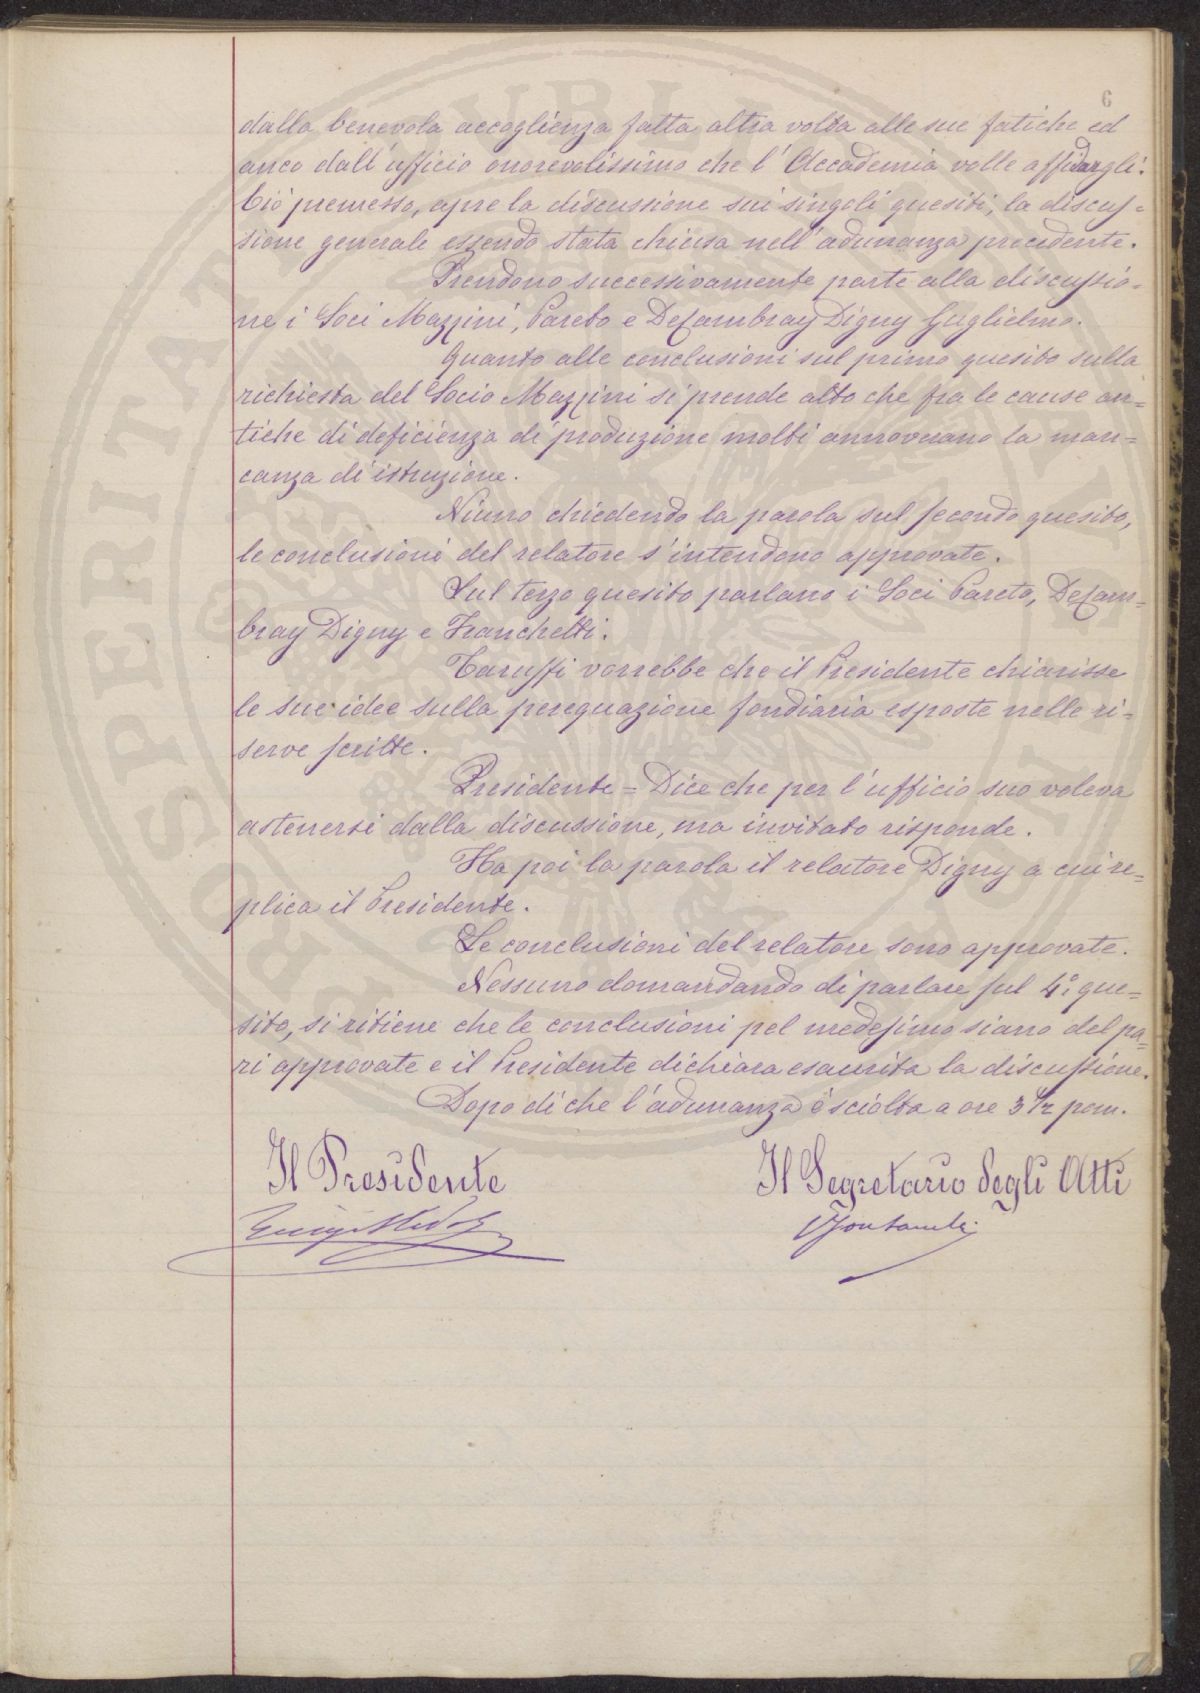 6
dalla benevola accoglienza fatta altra volta alle sue fatiche ed
anco dall'ufficio onorevolissimo che l'Accademia volle affidargli.
Ciò premesso, apre la discussione sui singoli quesiti, la discus=
sione generale essendo stata chiusa nell'adunanza precedente.
Prendono successivamente parte alla discussio=
ne i Soci Mazzini, Pareto e DeCambray Digny Guglielmo.
Quanto alle conclusioni sul primo quesito sulla
richiesta del Socio Mazzini si prende atto che fra le cause an=
tiche di deficienza di produzione molti annoverano la man=
canza di istruzione.
Niuno chiedendo la parola sul secondo quesito,
le conclusioni del relatore s'intendono approvate.
Sul terzo quesito parlano i Soci Pareto, DeCam=
bray Digny e Franchetti.
Taruffi vorrebbe che il Presidente chiarisse
le sue idee sulla perequazione fondiaria esposte nelle ri=
serve scritte.
Presidente = Dice che per l'ufficio suo voleva
astenersi dalla discussione, ma invitato risponde.
Ha poi la parola il relatore Digny a cui re=
plica il Presidente.
Le conclusioni del relatore sono approvate.
Nessuno domandando di parlare sul 4°: que=
sito, si ritiene che le conclusioni pel medesimo siano del pa=
ri approvate e il Presidente dichiara esaurita la discussione.
Dopo di che l'adunanza è sciolta a ore 3 1/2 pom.
Il Presidente
Il Segretario degli Atti
Luigi
PROSPERITATI